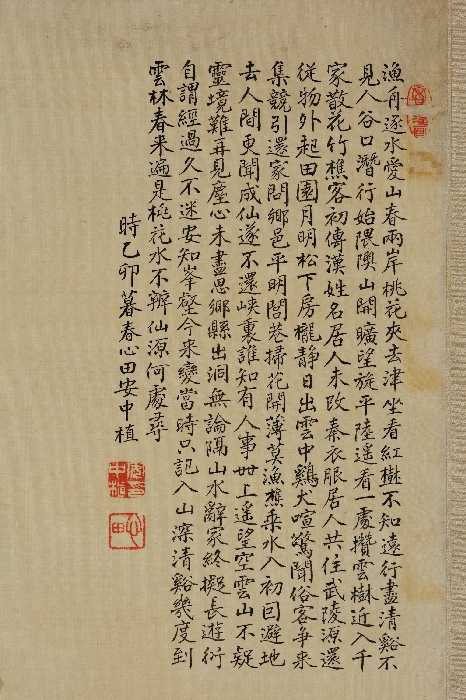 漁舟逐水愛山春兩岸桃花夾去津坐看紅樹不知遠行盡清谿不
見人谷口潛行始隈隩山開曠望旋平陸遙看一處攢雲樹近入千
家散花竹樵客初傳漢姓名居人未改秦衣服居人共住武陵源還
從物外起田園月明松下房櫳靜日出雲中鷄犬喧驚聞俗客爭來
集競引還家問鄉邑平明閭巷掃花開薄莫漁樵乘水入初因避地
去人間更聞成仙遂不還峽裏誰知有人事世上遙望空雲山不疑
靈境難再見塵心未盡思鄉縣出洞無論隔山水辭家終擬長遊衍
自謂經過久不迷安知峯壑今来變當時只記入山深清谿幾度到
雲林春来遍是桃花水不辨仙源何處尋
時乙卯暮春心田安中植
心田